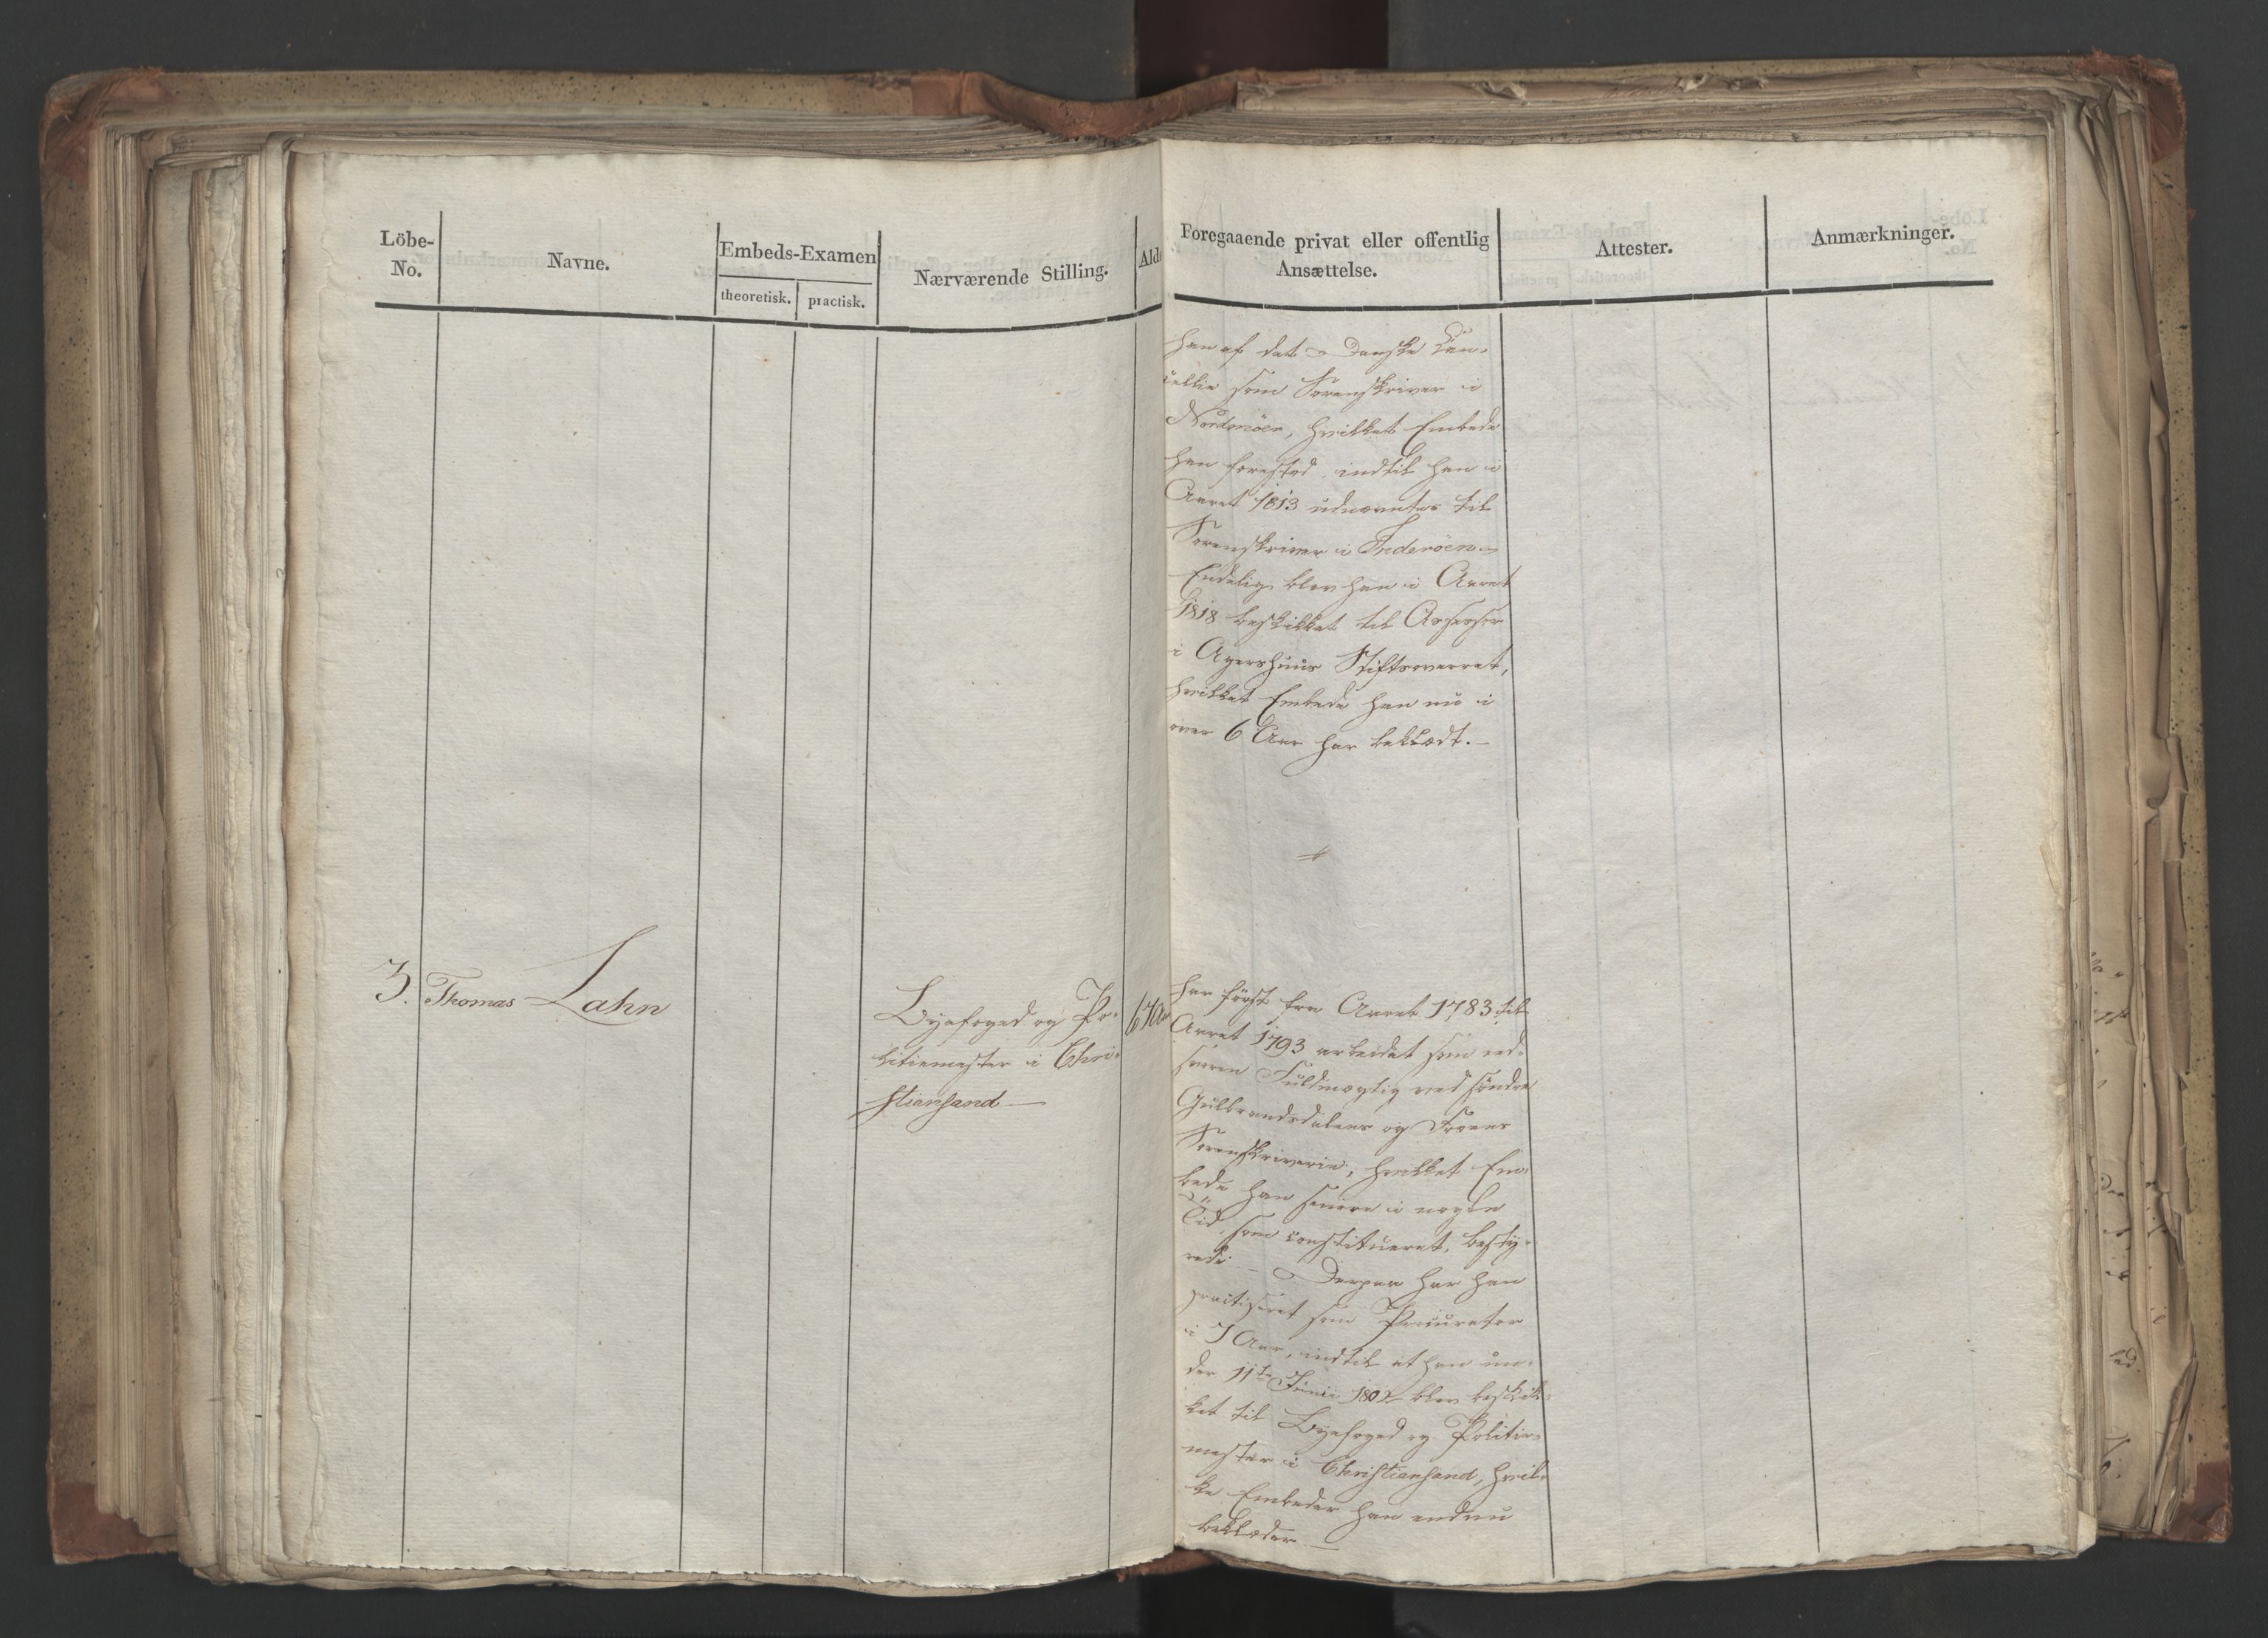 Löbe-
No.
Navne.
Embeds-Examen
theoretisk.
practisk.
Nærværende Stilling.
Ald
3.
Thomas Lahn
Byefoged og Po-
litiemester i Chri-
stiansand —
67 Aar
Foregaaende privat eller offentlig
Ansættelse.
Attester.
Anmærkninger.
han af det Danske Can-
cellie som Sorenskriver i
Nordmöer, hvilket Embede
han forestod indtil han i
Aaret 1813 udnævntes til
Sorenskriver i Inderöen —
Endelig blev han i Aaret
1818 beskikket til Assessor
i Agershuus Stiftsoverret,
hvilket Embede han nu i
over 6 Aar har beklædt. —
har först fra Aaret 1783 til
Aaret 1793 arbeidet som ed-
svoren Fuldmægtig ved söndre
Gulbrandsdalens og Froens
Sorenskriverie, hvilket Em-
bede han senere i nogen
Tid, som constitueret, besty-
rede. — Derpaa har han
practiseret som Procurator
i 7 Aar, indtil at han un-
der 11te Junii 1802 blev beskik-
ket til Byefoged og Politie-
mester i Christiansand, hvil-
ke Embeder han endnu
beklæder. —